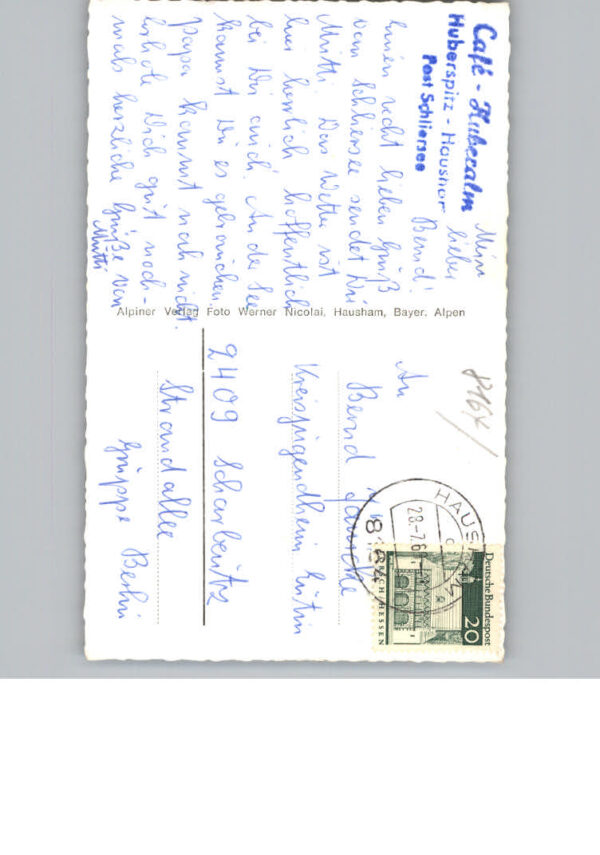 Café - Huberalm
Huberspitz - Hausham
Post Schliersee
Mein lieber
Bernd!
Einen recht lieben Gruß
vom Schliersee sendet Dir
Mutti. Das Wetter ist
hier herrlich hoffentlich
bei Dir auch. An der See
kannst Du es gebrauchen.
Papa kommt noch nicht.
Erhole Dich gut noch-
mals herzliche Grüße von
Mutti
Alpiner Verlag Foto Werner Nicolai, Hausham, Bayer. Alpen
8164
HAUSHAM
28.-7.6
8164
Deutsche Bundespost
20
LORSCH/HESSEN
An
Bernd
Kreisjugendheim Eutin
2409 Scharbeutz
Strandallee
Gruppe Berlin